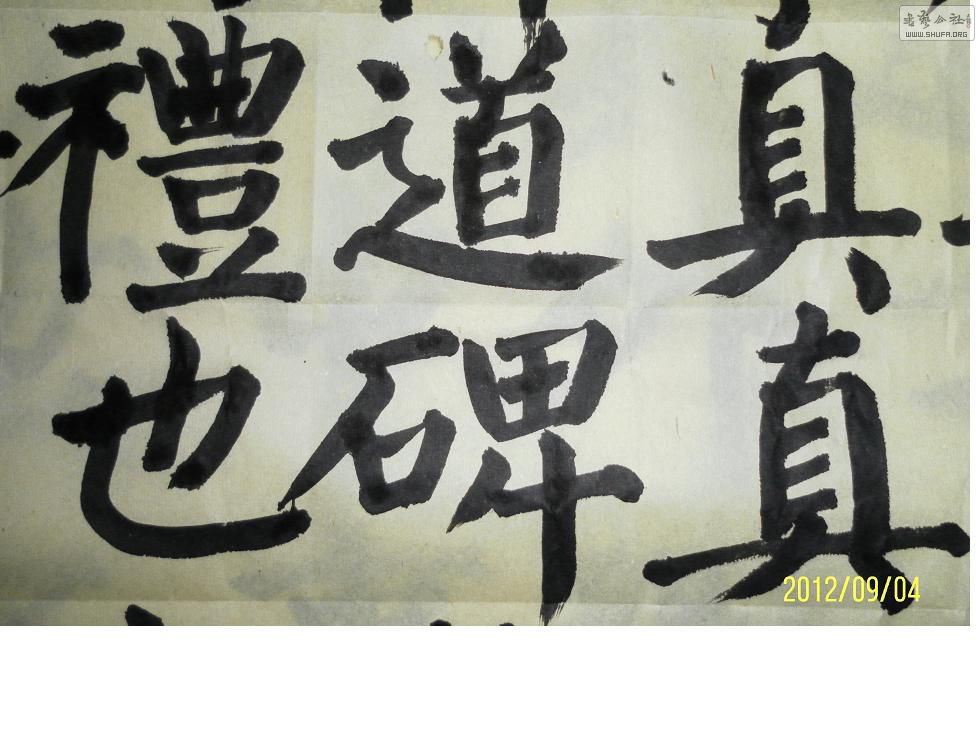 真真
道碑
禮也
2012/09/04
書藝公社
WWW.SHUFA.ORG